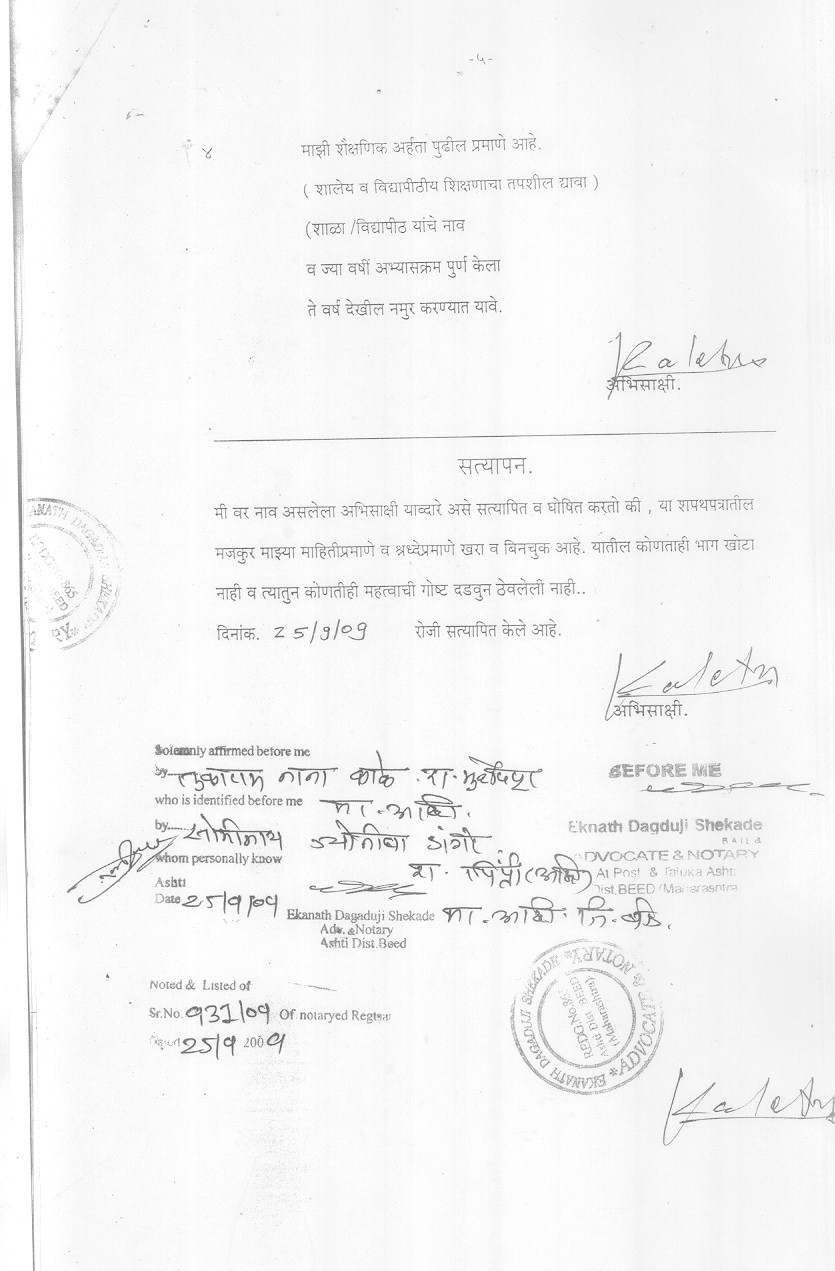 -५-
४ माझी शैक्षणिक अर्हता पुढील प्रमाणे आहे.
( शालेय व विद्यापीठीय शिक्षणाचा तपशील द्यावा )
(शाळा /विद्यापीठ यांचे नाव
व ज्या वर्षी अभ्यासक्रम पुर्ण केला
ते वर्ष देखील नमुर करण्यात यावे.
अभिसाक्षी.
सत्यापन.
मी वर नाव असलेला अभिसाक्षी याव्दारे असे सत्यापित व घोषित करतो की , या शपथपत्रातील
मजकुर माझ्या माहितीप्रमाणे व श्रध्देप्रमाणे खरा व बिनचुक आहे. यातील कोणताही भाग खोटा
नाही व त्यातुन कोणतीही महत्वाची गोष्ट दडवुन ठेवलेली नाही..
दिनांक. 25/9/09 रोजी सत्यापित केले आहे.
अभिसाक्षी.
Solemnly affirmed before me
by तुकाराम नाना काळे रा.
who is identified before me ता. आष्टी.
by सोमीनाथ ज्योतीबा डांगे
whom personally know रा. पिंप्री (आष्टी)
Ashti
Date 25/9/09
Ekanath Dagaduji Shekade ता. आष्टी जि. बीड.
Adv. & Notary
Ashti Dist. Beed
BEFORE ME
Eknath Dagduji Shekade
ADVOCATE & NOTARY
At Post & Taluka Ashti
Dist. BEED (Maharashtra
Noted & Listed of
Sr.No. 931/09 Of notaryed Regtsar
25/9 2009
EKANATH DAGADUJI SHEKADE * ADVOCATE & NOTARY *
Ashti Dist. BEED
(Maharashtra)